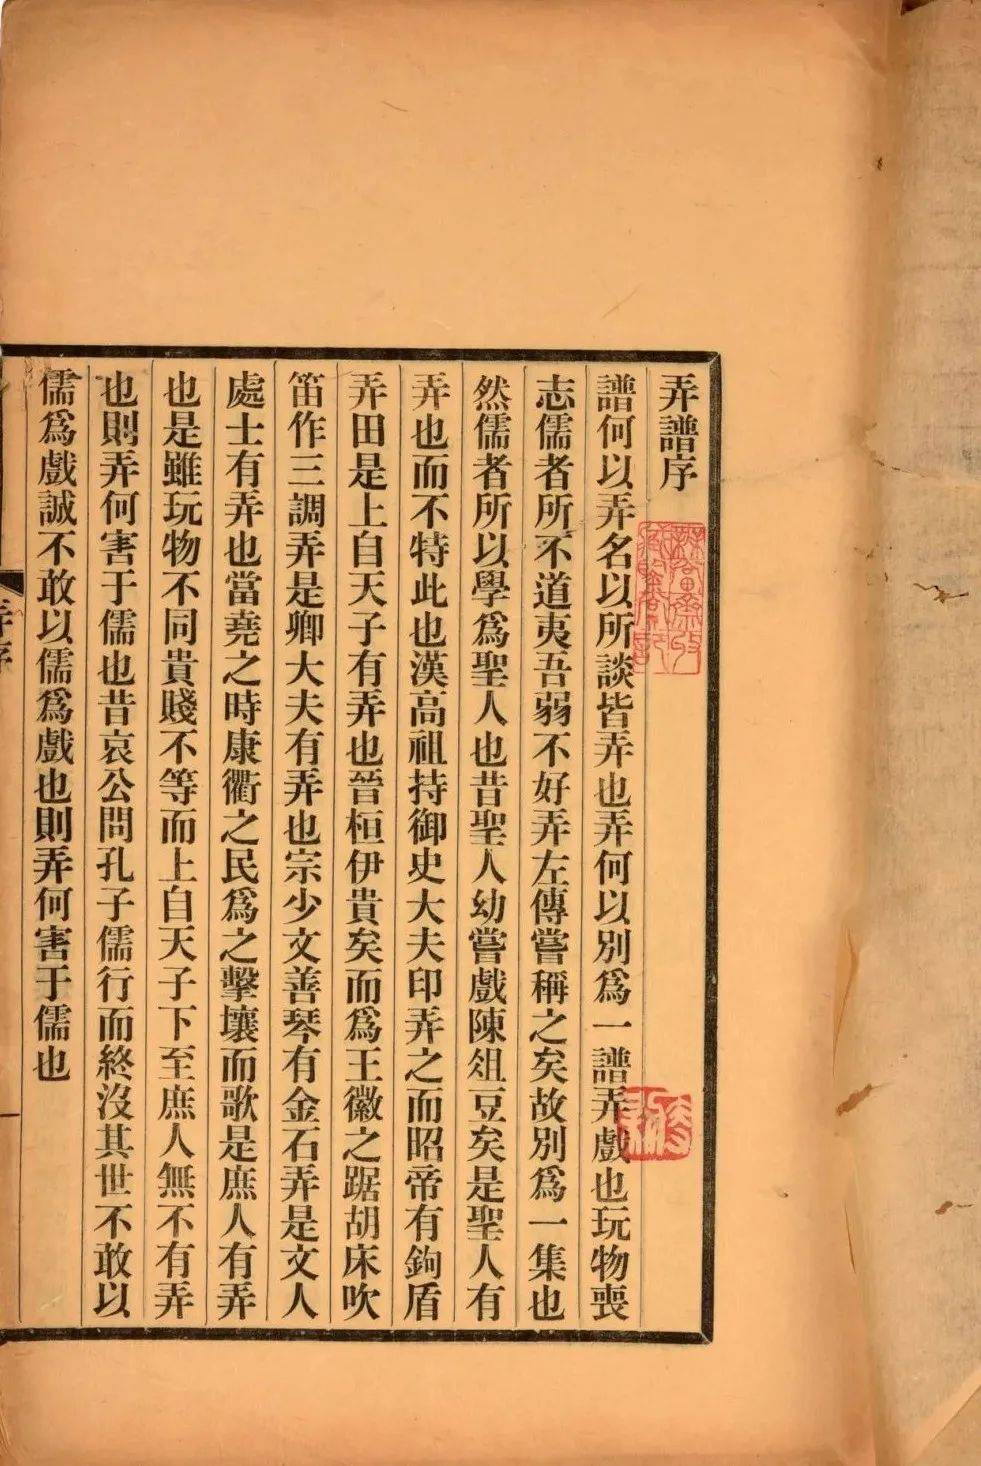 弄譜序
譜何以弄名以所談皆弄也弄何以別爲一譜弄戲也玩物喪
志儒者所不道夷吾弱不好弄左傳嘗稱之矣故別爲一集也
然儒者所以學爲聖人也昔聖人幼嘗戲陳俎豆矣是聖人有
弄也而不特此也漢高祖持御史大夫印弄之而昭帝有鉤盾
弄田是上自天子有弄也晉桓伊貴矣而爲王徽之踞胡床吹
笛作三調弄是卿大夫有弄也宗少文善琴有金石弄是文人
處士有弄也當堯之時康衢之民爲之擊壤而歌是庶人有弄
也是雖玩物不同貴賤不等而上自天子下至庶人無不有弄
也則弄何害于儒也昔哀公問孔子儒行而終沒其世不敢以
儒爲戲誠不敢以儒爲戲也則弄何害于儒也